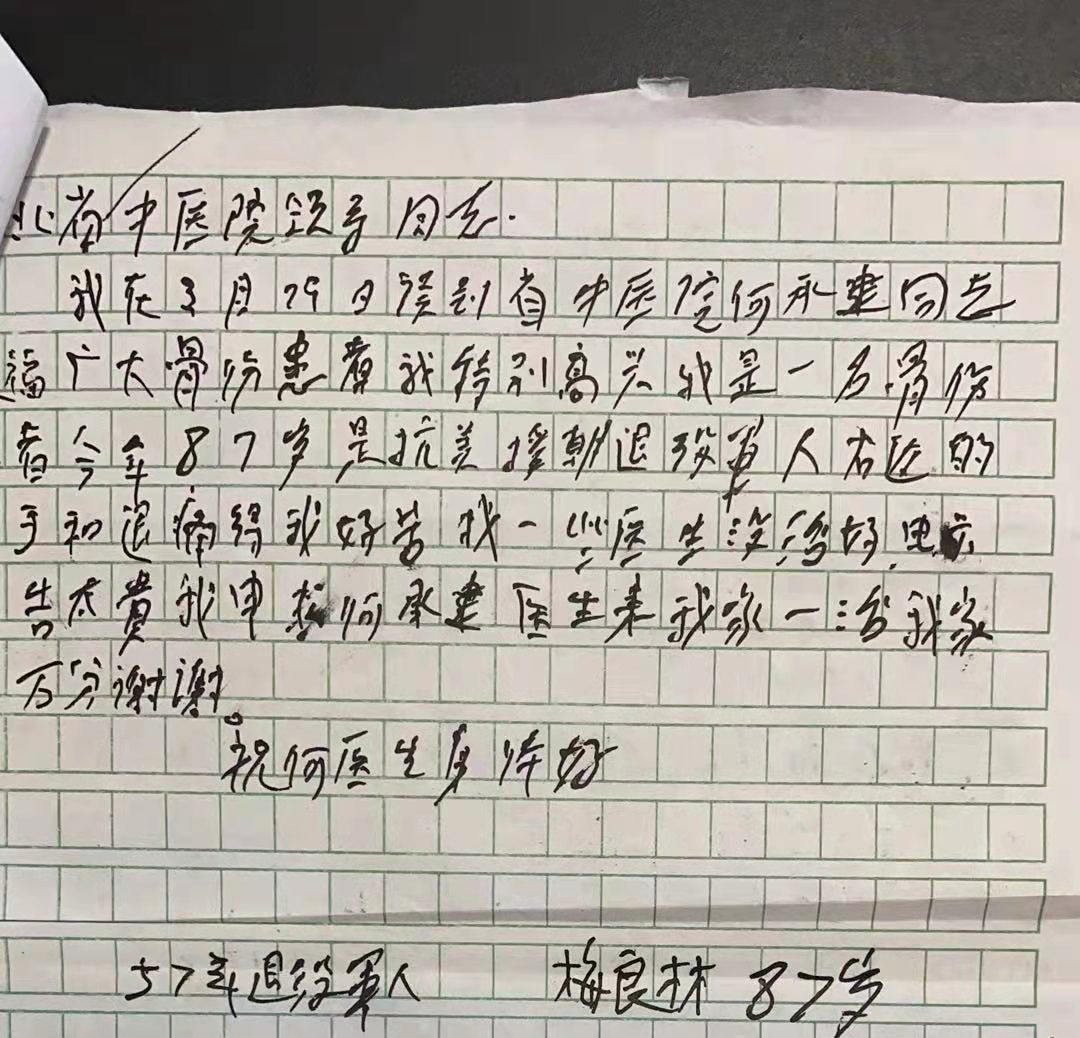 北省中医院领导同志.
我在3月29日读到省中医院何承建同志
福广大骨伤患者我特别高兴我是一名骨伤
者今年87岁是抗美援朝退役军人右边的
手和退痛得我好苦找一些医生没治好.电广
告太贵我申请何承建医生来我家一治我家
万分谢谢。
祝何医生身体好
57年退役军人 梅良林 87岁